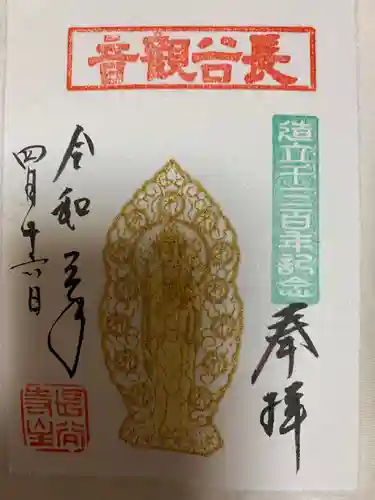 長谷觀音
造立千三百年記念
奉拝
令和三年
四月十六日
長谷